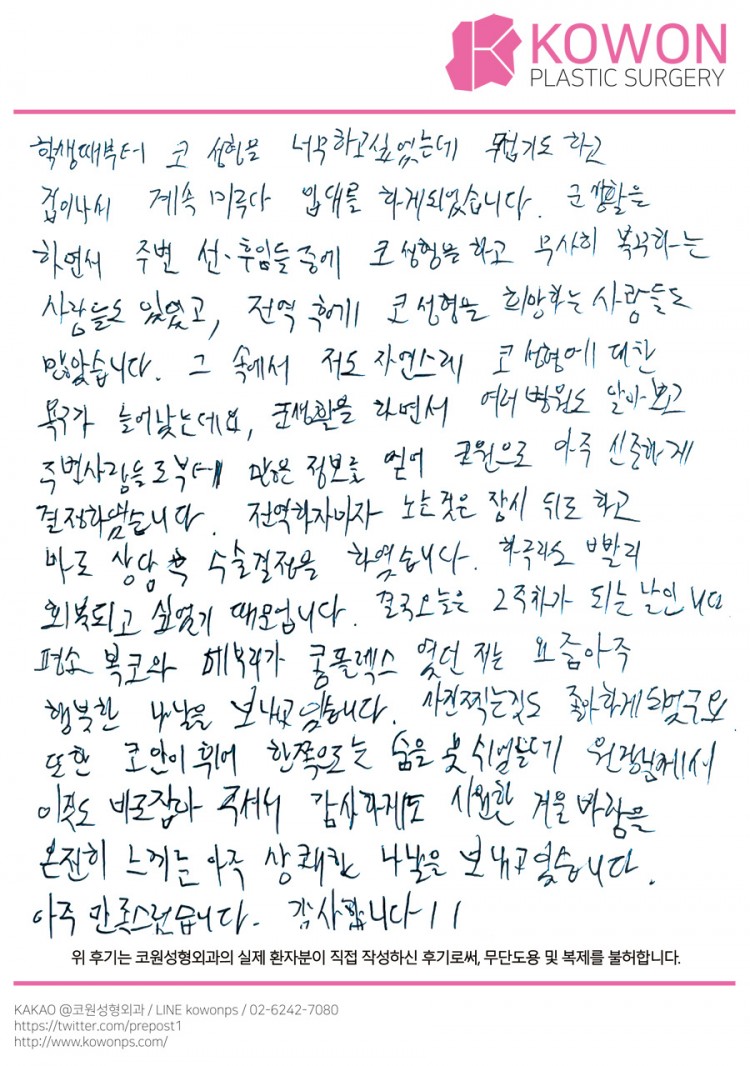 KOWON
PLASTIC SURGERY
학생때부터 코 성형을 너무하고싶었는데 무섭기도 하고
겁이나서 계속 미루다 입대를 하게되었습니다. 군생활을
하면서 주변 선·후임들 중에 코성형을 하고 무사히 복귀하는
사람들도 있었고, 전역 후에 코성형을 희망하는 사람들도
많았습니다. 그 속에서 저도 자연스레 코성형에 대한
욕구가 늘어났는데요, 군생활을 하면서 여러병원도 알아보고
주변사람들로부터 많은 정보를 얻어 코원으로 아주 신중하게
결정하였습니다. 전역하자마자 노는것은 잠시 뒤로 하고
바로 상담 후 수술결정을 하였습니다. 하루라도 빨리
회복되고 싶었기 때문입니다. 결국오늘은 2주차가 되는 날인니다
평소 복코와 매부리가 콤플렉스 였던 저는 요즘아주
행복한 나날을 보내고있습니다. 사진찍는것도 좋아하게되었구요
또한 코안이 휘어 한쪽으로는 숨을 못쉬었는데 원장님께서
이것도 바로잡아 주셔서 감사하게도 시원한 겨울바람을
온전히 느끼는 아주 상쾌한 나날을 보내고있습니다.
아주 만족스럽습니다. 감사합니다!!
위 후기는 코원성형외과의 실제 환자분이 직접 작성하신 후기로써, 무단도용 및 복제를 불허합니다.
KAKAO @코원성형외과 / LINE kowonps / 02-6242-7080
https://twitter.com/prepost1
http://www.kowonps.com/